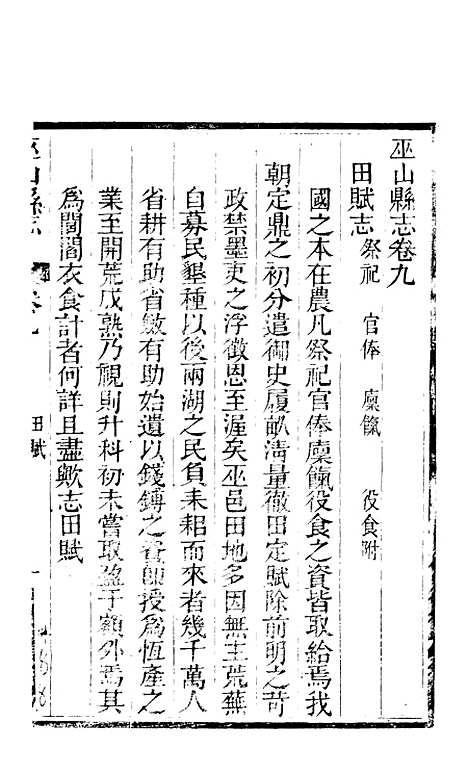 巫山縣志卷九
田賦志 祭祀 官俸 廩餼 役食附
國之本在農凡祭祀官俸廩餼役食之資皆取給焉我
朝定鼎之初分遣御史履畝清量徹田定賦除前明之苛
政禁墨吏之浮徵恩至渥矣巫邑田地多因無主荒蕪
自募民墾種以後兩湖之民負耒耜而來者幾千萬人
省耕有助省斂有助始遺以錢鎛之資師授為恆產之
業至開荒戊熟乃視則升科初未嘗取盈于額外焉其
為閭閻衣食計者何詳且盡歟志田賦
巫山縣志
卷九
田賦
一